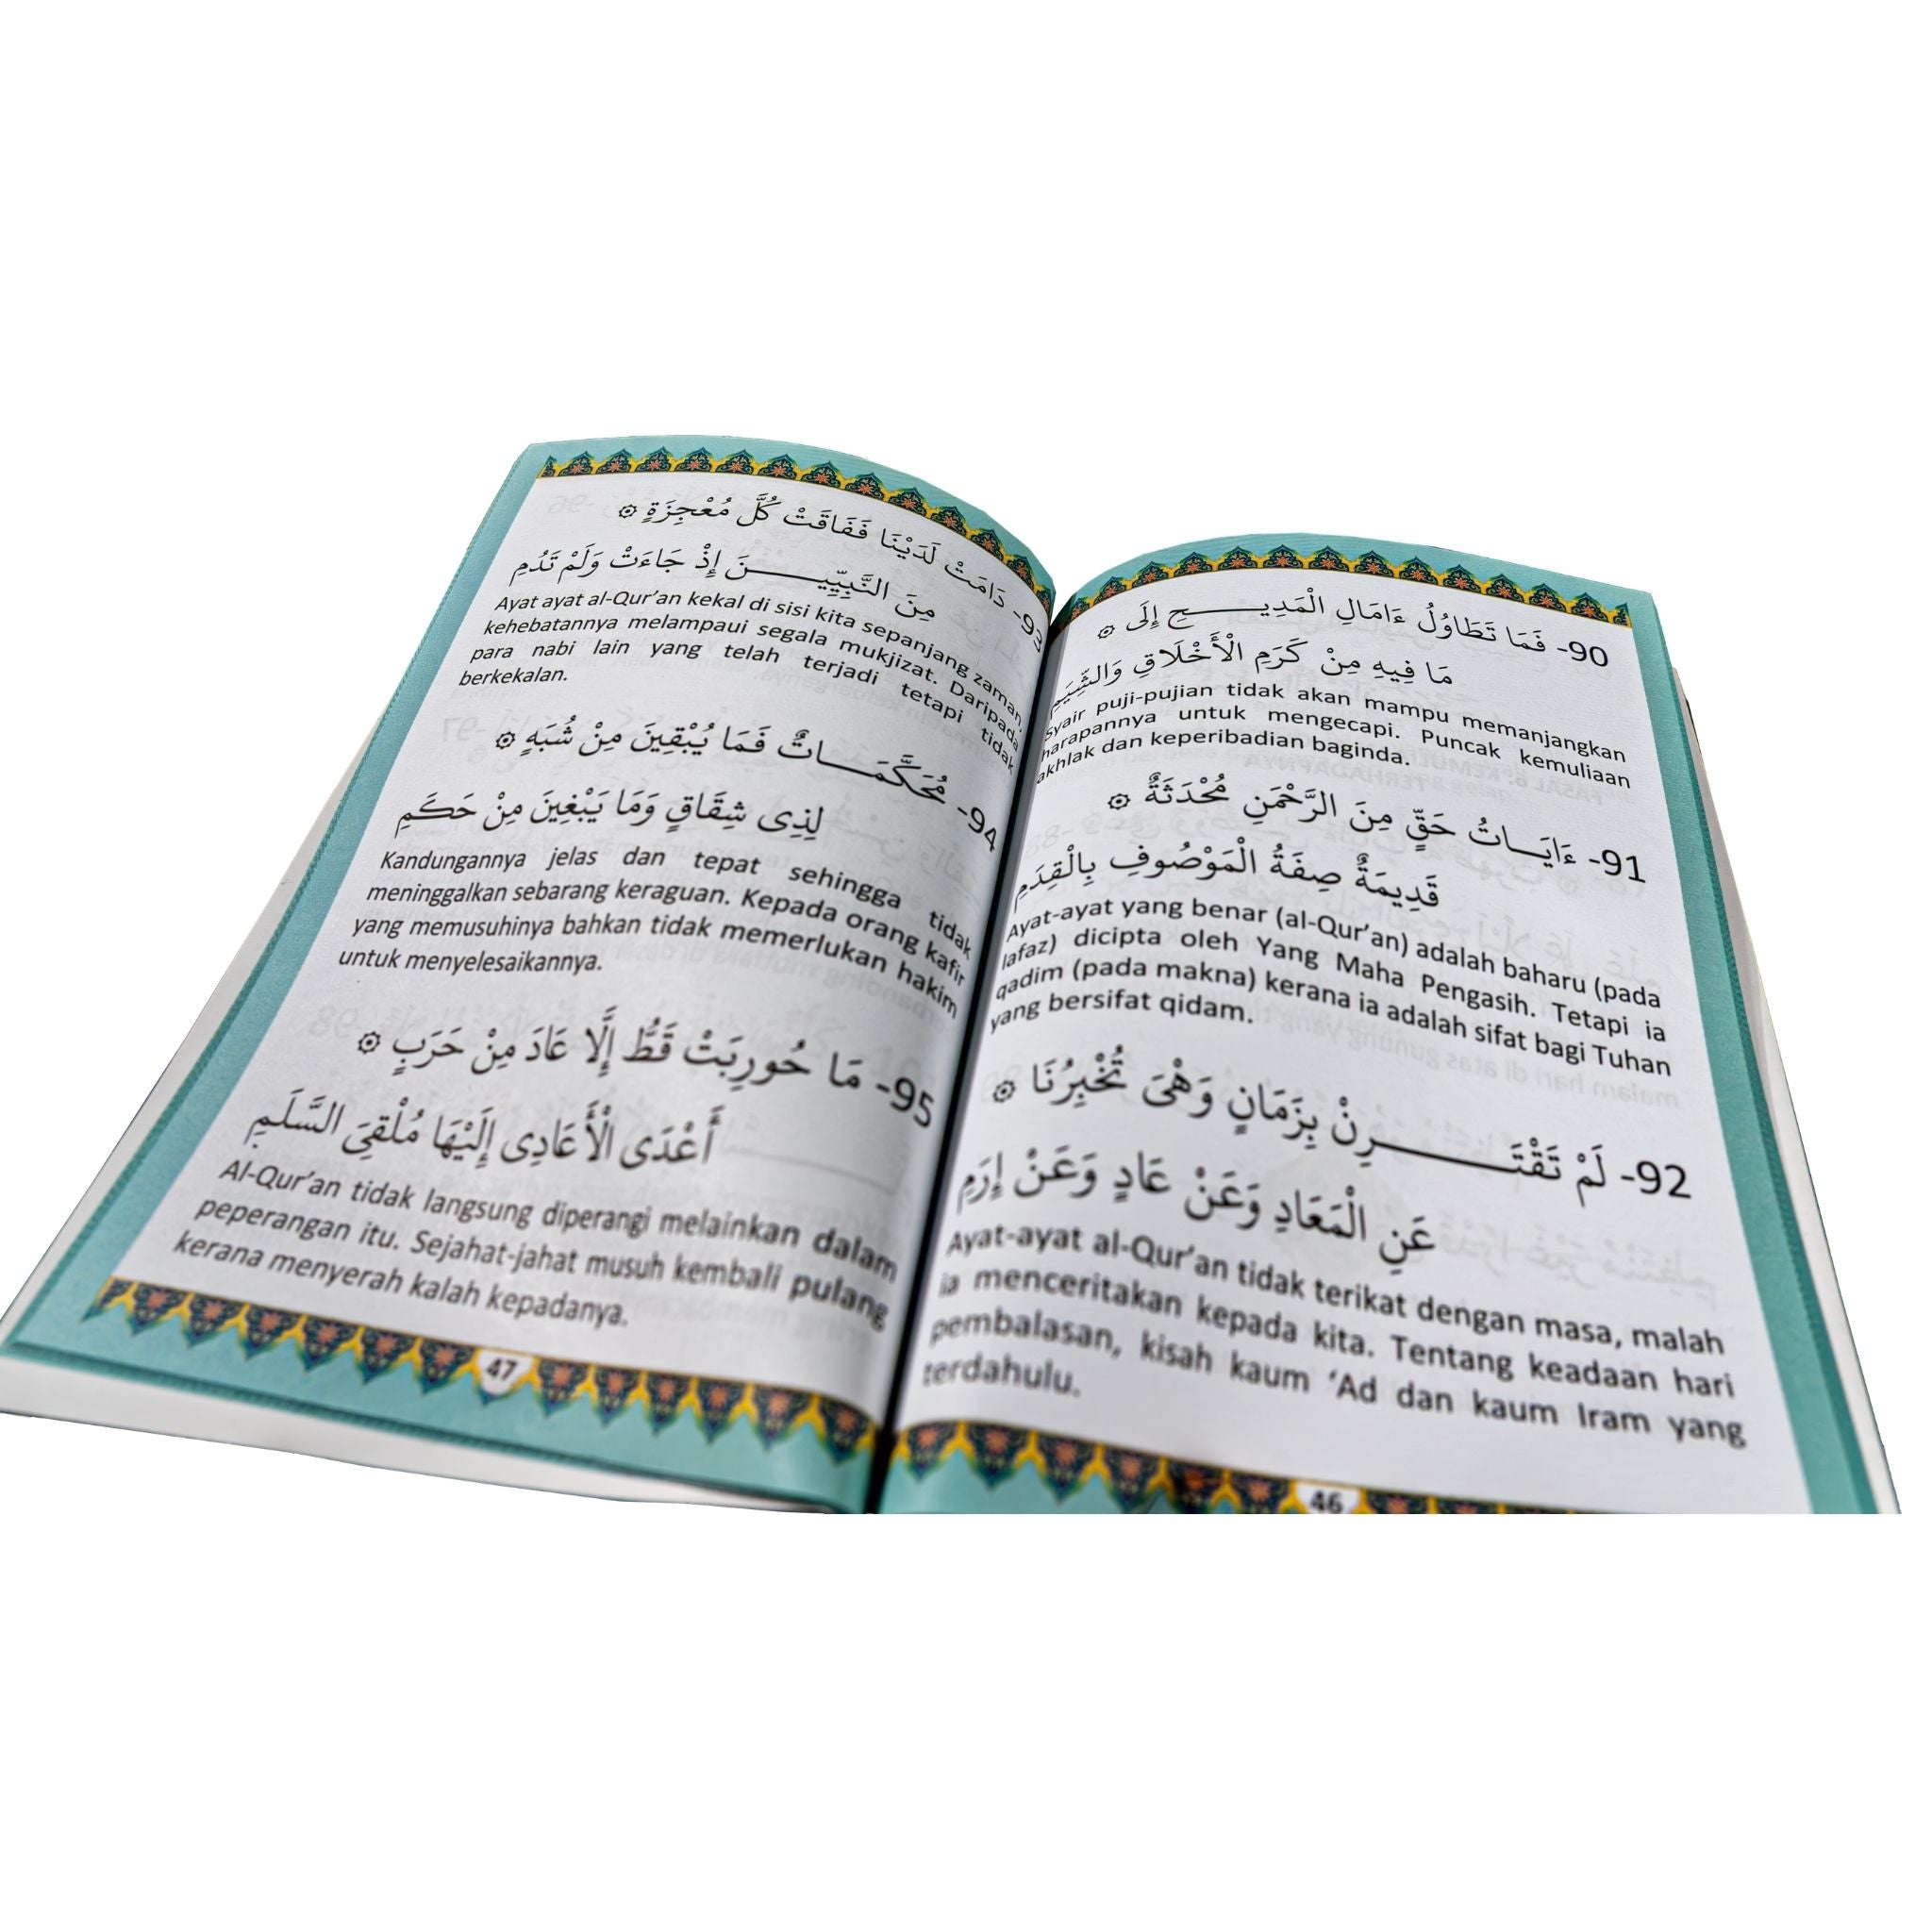 90- فَمَا تَطَاوُلُ ءَامَالِ الْمَدِيــــــحِ إِلَى ۞
مَا فِيهِ مِنْ كَرَمِ الْأَخْلَاقِ وَالشِّيَمِ
Syair puji-pujian tidak akan mampu memanjangkan
harapannya untuk mengecapi. Puncak kemuliaan
akhlak dan keperibadian baginda.
91- ءَايَـــاتُ حَقٍّ مِنَ الرَّحْمَنِ مُحْدَثَةٌ ۞
قَدِيمَةٌ صِفَةُ الْمَوْصُوفِ بِالْقِدَمِ
Ayat-ayat yang benar (al-Qur’an) adalah baharu (pada
lafaz) dicipta oleh Yang Maha Pengasih. Tetapi ia
qadim (pada makna) kerana ia adalah sifat bagi Tuhan
yang bersifat qidam.
92- لَمْ تَقْتَـــــــرِنْ بِزَمَانٍ وَهْىَ تُخْبِرُنَا ۞
عَنِ الْمَعَادِ وَعَنْ عَادٍ وَعَنْ إِرَمِ
Ayat-ayat al-Qur’an tidak terikat dengan masa, malah
ia menceritakan kepada kita. Tentang keadaan hari
pembalasan, kisah kaum ‘Ad dan kaum Iram yang
terdahulu.
46
93- دَامَتْ لَدَيْنَا فَفَاقَتْ كُلَّ مُعْجِزَةٍ ۞
مِنَ النَّبِيِّيـــــنَ إِذْ جَاءَتْ وَلَمْ تَدُمِ
Ayat ayat al-Qur’an kekal di sisi kita sepanjang zaman,
kehebatannya melampaui segala mukjizat. Daripada
para nabi lain yang telah terjadi tetapi tidak
berkekalan.
94- مُحَكَّمَـــاتٌ فَمَا يُبْقِينَ مِنْ شُبَهٍ ۞
لِذِى شِقَاقٍ وَمَا يَبْغِينَ مِنْ حَكَمِ
Kandungannya jelas dan tepat sehingga tidak
meninggalkan sebarang keraguan. Kepada orang kafir
yang memusuhinya bahkan tidak memerlukan hakim
untuk menyelesaikannya.
95- مَا حُورِبَتْ قَطُّ إِلَّا عَادَ مِنْ حَرَبٍ ۞
أَعْدَى الْأَعَادِى إِلَيْهَا مُلْقِىَ السَّلَمِ
Al-Qur’an tidak langsung diperangi melainkan dalam
peperangan itu. Sejahat-jahat musuh kembali pulang
kerana menyerah kalah kepadanya.
47